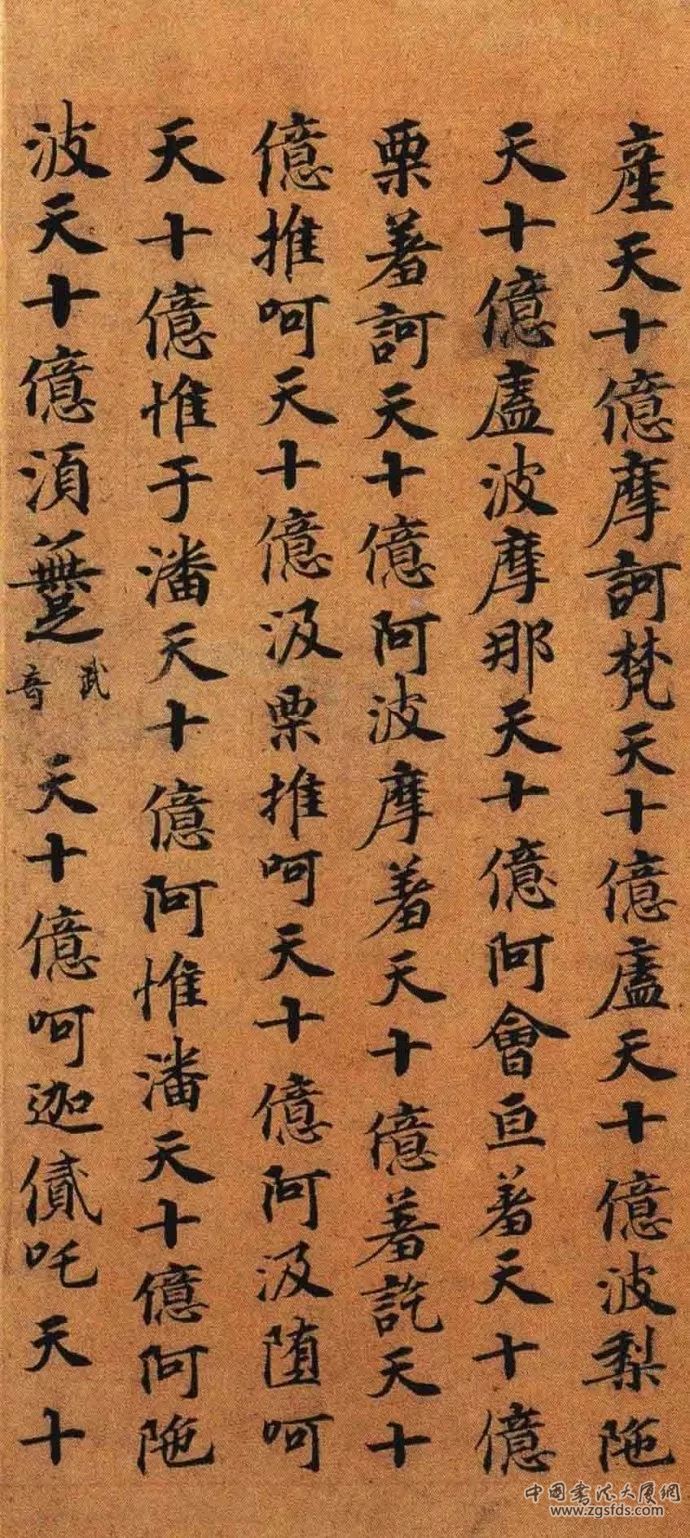 産天十億摩訶梵天十億盧天十億波梨陁
天十億盧波摩那天十億阿會亘著天十億
栗著訶天十億阿波摩著天十億著訖天十
億推呵天十億汲栗推呵天十億阿汲堕呵
天十億惟于潘天十億阿惟潘天十億阿陁
波天十億湏䠢武音天十億呵迦貳吒天十
中国书法大厦網
www.zgsfds.com